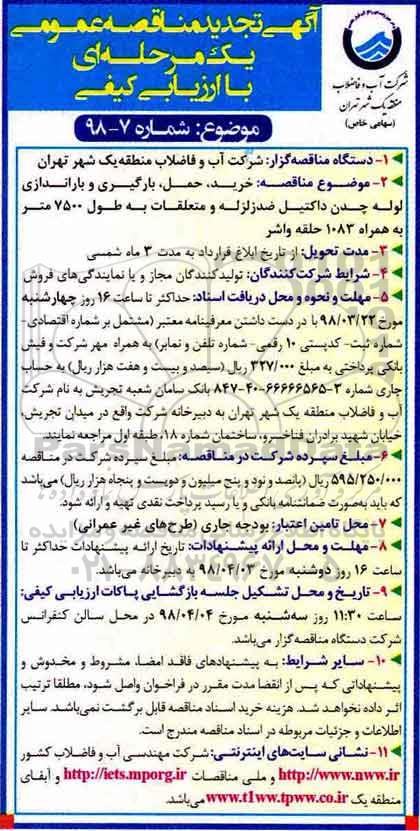 آگهی تجدید مناقصه عمومی
یک مرحله‌ای
با ارزیابی کیفی
شرکت آب و فاضلاب
منطقه یک شهر تهران
(سهامی خاص)
موضوع: شماره ۷-۹۸
۱- دستگاه مناقصه‌گزار: شرکت آب و فاضلاب منطقه یک شهر تهران
۲- موضوع مناقصه: خرید، حمل، بارگیری و باراندازی
لوله چدن داکتیل ضدزلزله و متعلقات به طول ۷۵۰۰ متر
به همراه ۱۰۸۳ حلقه واشر
۳- مدت تحویل: از تاریخ ابلاغ قرارداد به مدت ۳ ماه شمسی
۴- شرایط شرکت‌کنندگان: تولیدکنندگان مجاز و یا نمایندگی‌های فروش
۵- مهلت و نحوه و محل دریافت اسناد: حداکثر تا ساعت ۱۶ روز چهارشنبه
مورخ ۹۸/۰۳/۲۲ با در دست داشتن معرفینامه معتبر (مشتمل بر شماره اقتصادی-
شماره ثبت- کدپستی ۱۰ رقمی- شماره تلفن و نمابر) به همراه مهر شرکت و فیش
بانکی پرداختی به مبلغ ۳۲۷/۰۰۰ ریال (سیصد و بیست و هفت هزار ریال) به حساب
جاری شماره ۳-۶۶۶۶۶۵۶۵-۴۰-۸۴۷ بانک سامان شعبه تجریش به نام شرکت
آب و فاضلاب منطقه یک شهر تهران به دبیرخانه شرکت واقع در میدان تجریش،
خیابان شهید برادران فناخسرو، ساختمان شماره ۱۸، طبقه اول مراجعه نمایند.
۶- مبلغ سپرده شرکت در مناقصه: مبلغ سپرده شرکت در مناقصه
۵۹۵/۲۵۰/۰۰۰ ریال (پانصد و نود و پنج میلیون و دویست و پنجاه هزار ریال) می‌باشد
که باید به‌صورت ضمانتنامه بانکی و یا رسید پرداخت نقدی تهیه و ارائه شود.
۷- محل تامین اعتبار: بودجه جاری (طرح‌های غیر عمرانی)
۸- مهلت و محل ارائه پیشنهادات: تاریخ ارائه پیشنهادات حداکثر تا
ساعت ۱۶ روز دوشنبه مورخ ۹۸/۰۴/۰۳ به دبیرخانه می‌باشد.
۹- تاریخ و محل تشکیل جلسه بازگشایی پاکات ارزیابی کیفی:
ساعت ۱۱:۳۰ روز سه‌شنبه مورخ ۹۸/۰۴/۰۴ در محل سالن کنفرانس
شرکت دستگاه مناقصه‌گزار می‌باشد.
۱۰- سایر شرایط: به پیشنهادهای فاقد امضا، مشروط و مخدوش و
پیشنهاداتی که پس از انقضا مدت مقرر در فراخوان واصل شود، مطلقا ترتیب
اثر داده نخواهد شد. هزینه خرید اسناد مناقصه قابل برگشت نمی‌باشد. سایر
اطلاعات و جزئیات مربوطه در اسناد مناقصه مندرج است.
۱۱- نشانی سایت‌های اینترنتی: شرکت مهندسی آب و فاضلاب کشور
http://www.nww.ir و ملی مناقصات http://iets.mporg.ir و آبفای
منطقه یک www.t1ww.tpww.co.ir می‌باشد.